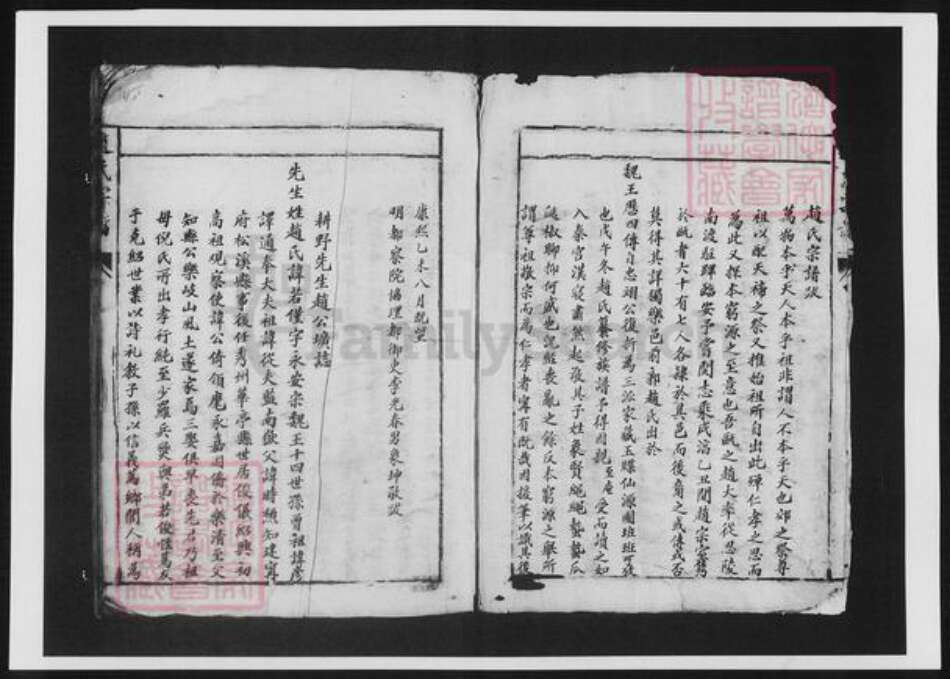 趙氏宗譜跋
萬物本乎天人本乎祖非謂人不本乎天也郊之祭尊
祖以配天禘之祭又推始祖所自出此殫仁孝之思而
為此又探本窮源之至意也吾甌之趙大率從思陵
南渡駐蹕臨安予嘗閱志乘咸淳乙丑間趙宗室舊
於甌者六十有七人各隸於其邑而後裔之或傳或否
莫得其詳獨樂邑前郭趙氏出於
魏王歷四傳自忠翊公復析為三派家藏玉牒仙源圖班班可考
也戊午冬趙氏纂修族譜予得因親至庵受而讀之如
入秦宮漢寢肅然起敬其子姓象賢繩繩蟄蟄瓜
瓞椒聊抑何盛也況能喪亂之餘反本窮源之舉所
謂尊祖敬宗而為仁孝者寧有既哉因援筆以識其後
康熙乙未八月既望
明都察院協理都御史李光春男象坤敬跋
耕野先生趙公壙誌
先生姓趙氏諱若僅字永安宗魏王十四世孫曾祖諱彥
譯通奉大夫夫祖諱從夫藍南嶽父諱時 知建寧
府松溪縣事後任秀州華亭縣世居儀儀紹興初
高祖觀察使諱公倚領麾永嘉因僑於樂清至父
知縣公樂岐山風土遂家焉三娶俱早喪先君乃祖
母倪氏所出孝行純至少罹兵燹與弟若俊 篤友
于克紹世業以詩礼教子孫以信義為鄉閭人稱為
FamilySearch